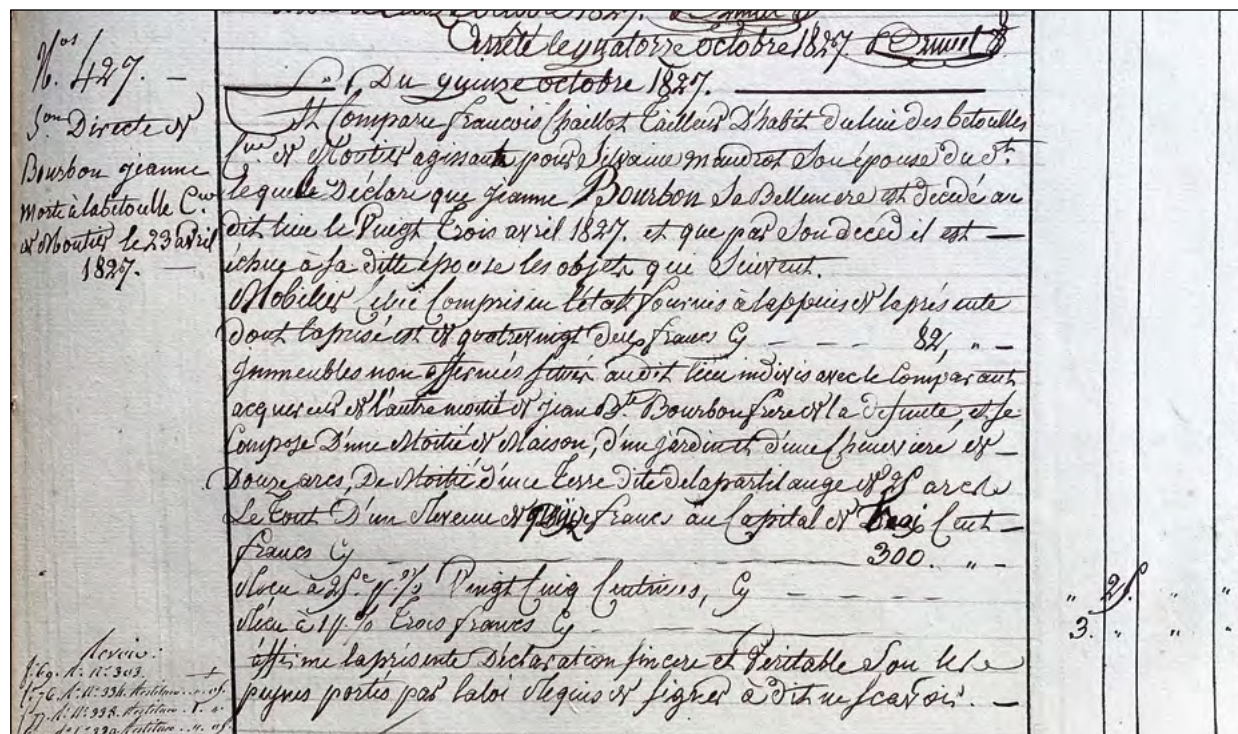 Arrêté le quatorze octobre 1827
Du quinze octobre 1827.
Nos
N. 427.
Son Directe de
Bourbon jeanne
morte à labitoulle Cne
de Moutier le 23 avril
1827.
St Comparu francois Chaillot tailleur D'habit du lieu des betoulles
Cne de Moutier agissant pour Silvaine mandrot Son épouse Du dt.
lequelle Déclare que jeanne Bourbon Sa Bellemere est décédé au
dit lieu le Vingt Trois avril 1827. et que par Son deced il est
échue à Sa ditte épouse les objets qui Suivent.
Mobilier Compris en l'état fournis à lappuis de la présente
dont laprisé est de quatrevingt Deux francs Cy 82, "
Immeubles non affermés situés audit lieu indivis avec le Comparant
acquereur de l'autre moitié de jean Bte Bourbon frere de la defunte, et se
Compose D'une Moitié de Maison, d'un jardin et d'une Cheneviere, de
Douze ares, De Moitié d'une terre dite de de 25 ares
Le tout D'un Revenu de quinze francs au Capital de trois Cent
francs Cy 300. "
Reçu à 25c p % Vingt Cinq Centimes, Cy " 25. " "
Reçu à 1 p % trois francs Cy 3. " " "
affirme la présente Déclaration sincere et Veritable Sou les
peynes portés par laloi Requis de signer à dit ne scavoir.
Revoir:
fo 69. Ro No 303.